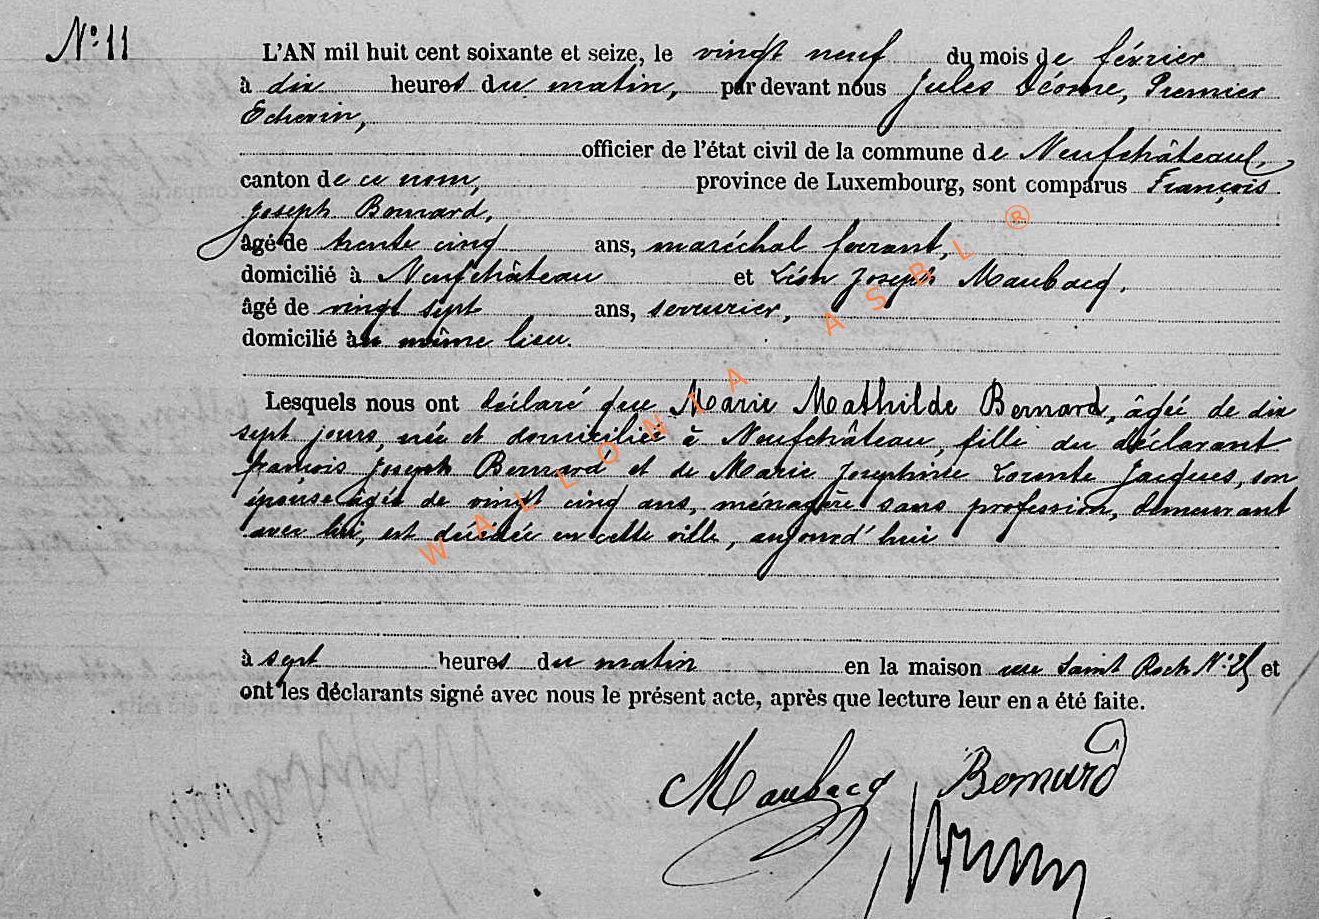 N° 11
L'AN mil huit cent soixante et seize, le vingt neuf du mois de février
à dix heures du matin, par devant nous Jules Déome, Premier
Echevin,
officier de l'état civil de la commune de Neufchâteau,
canton de ce nom, province de Luxembourg, sont comparus François
Joseph Bernard,
âgé de trente cinq ans, maréchal ferrant,
domicilié à Neufchâteau et Léon Joseph Maubacq,
âgé de vingt sept ans, serrurier,
domicilié au même lieu.
Lesquels nous ont déclaré que Marie Mathilde Bernard, âgée de dix
sept jours, née et domiciliée à Neufchâteau, fille du déclarant
françois Joseph Bernard et de Marie Joséphine Lorente Jacques, son
épouse âgée de vingt cinq ans, ménagère sans profession, demeurant
avec lui, est décédée en cette ville, aujourd'hui
à sept heures du matin en la maison rue Saint Roch N° et
ont les déclarants signé avec nous le présent acte, après que lecture leur en a été faite.
Maubacq Bernard
WALLONIA ASBL ®